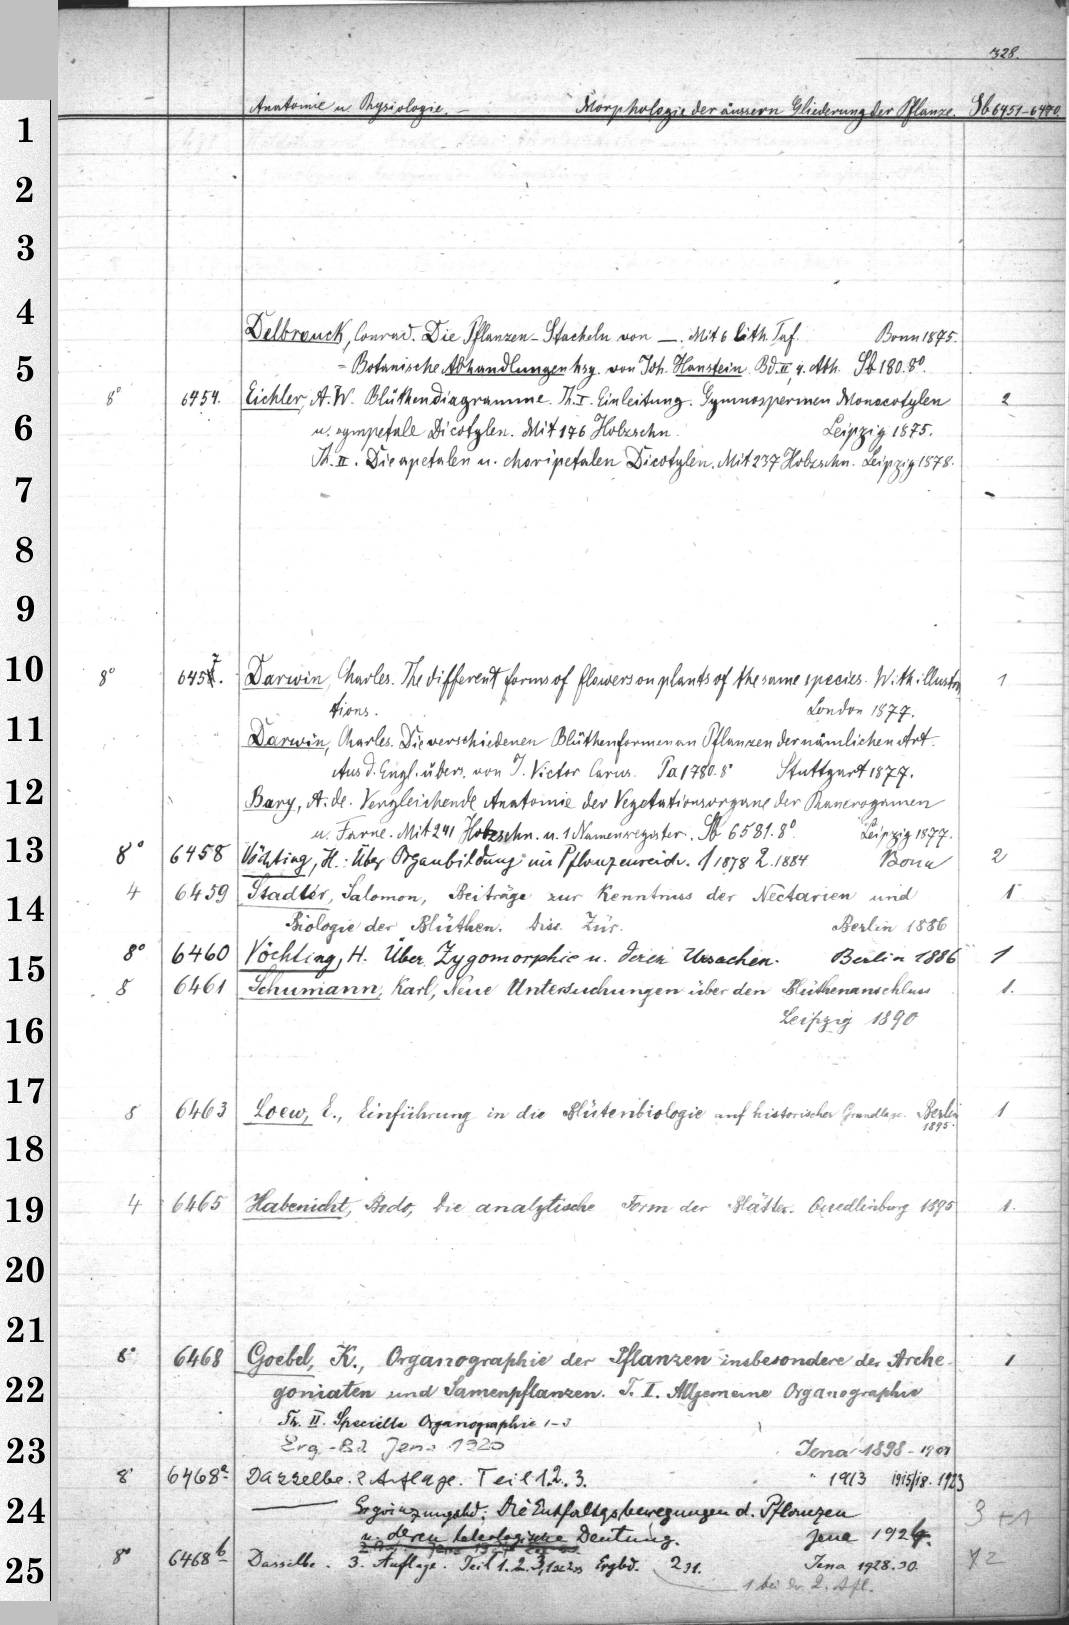 328.
Anatomie u. Physiologie. — Morphologie der äussern Gliederung der Pflanze. Sb 6451-6470.
1
2
3
4
Delbrouck, Conrad. Die Pflanzen-Stacheln von —. Mit 6 lith. Taf. Bonn 1875.
5
= Botanische Abhandlungen hsg. von Joh. Hanstein. Bd. II, 4. Abh. Sb 180. 8°.
8° 6454. Eichler, A. W. Blüthendiagramme. Th. I. Einleitung. Gymnospermen Monocotylen 2
6
u. sympetale Dicotylen. Mit 176 Holzschn. Leipzig 1875.
Th. II. Die apetalen u. choripetalen Dicotylen. Mit 237 Holzschn. Leipzig 1878.
7
8
9
10
8° 6457. Darwin, Charles. The different forms of flowers on plants of the same species. With illustra
tions. London 1877. 1
11
Darwin, Charles. Die verschiedenen Blüthenformen an Pflanzen der nämlichen Art.
Aus d. Engl. übers. von J. Victor Carus. Pa 1780. 8° Stuttgart 1877.
12
Bary, A. de. Vergleichende Anatomie der Vegetationsorgane der Phanerogamen
u. Farne. Mit 241 Holzschn. u. 1 Namensregister. Sb 6581. 8° Leipzig 1877.
13
8° 6458 Vöchting, H.: Über Organbildung im Pflanzenreich. 1 1878 2. 1884 Bonn 2
4 6459 Stadler, Salomon, Beiträge zur Kenntniss der Nectarien und 1
14
Biologie der Blüthen. Diss. Zür. Berlin 1886
8° 6460 Vöchting, H. Über Zygomorphie u. deren Ursachen. Berlin 1886 1
15
8 6461 Schumann, Karl, Neue Untersuchungen über den Blüthenanschluss 1.
Leipzig 1890
16
17
8 6463 Loew, E., Einführung in die Blütenbiologie auf historischer Grundlage. Berlin 1
1895.
18
4 6465 Habenicht, Bodo, Die analytische Form der Blätter. Quedlinburg 1895 1.
19
20
21
8° 6468 Goebel, K., Organographie der Pflanzen insbesondere der Arche- 1
22
goniaten und Samenpflanzen. T. I. Allgemeine Organographie
Th. II. Specielle Organographie 1-3
23
Erg.-Bd Jena 1920 Jena 1898-1901
8° 6468a Dasselbe. 2 Auflage. Teil 1. 2. 3. " 1913 1915/18. 1923
24
— Ergänzungsbd: Die Entfaltgsbewegungen d. Pflanzen 3 + 1
u. deren teleologische Deutung. Jena 1924.
25
8° 6468b Dasselbe. 3. Auflage. Teil 1. 2. 3, Ergbd. Jena 1928.30. 2
1 bei der 2. Afl.